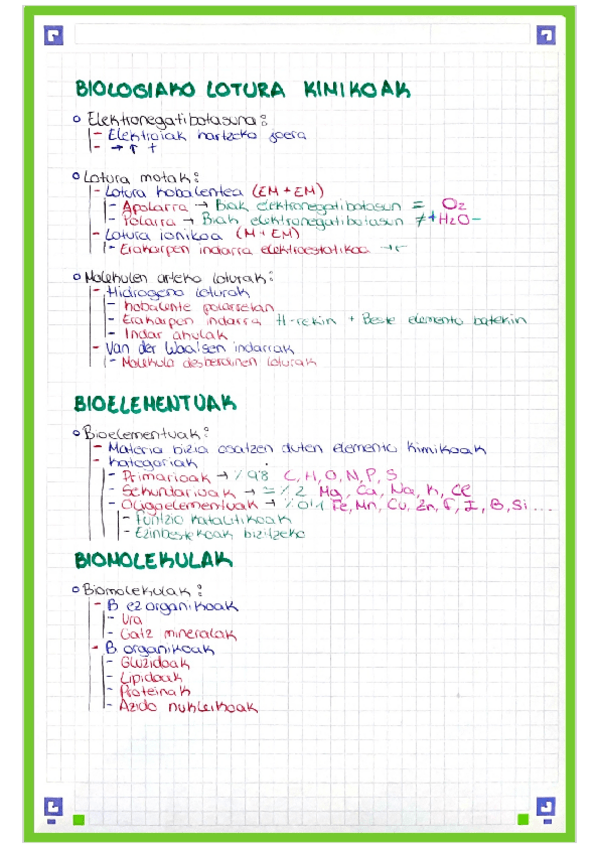 BIOLOGIAKO LOTURA KIMIKOAK
Elektronegatibotasuna:
- Elektroiak hartzeko joera
- → ↑ +
Lotura motak:
- Lotura kobalentea (EM + EM)
- Apolarra → Biak elektronegatibotasun = O2
- Polarra → Biak elektronegatibotasun ≠ + H2O -
- Lotura ionikoa (M + EM)
- Erakarpen indarra elektroestatikoa
Molekulen arteko loturak:
- Hidrogeno loturak
- Kobalente polarretan
- Erakarpen indarra H-rekin + Beste elementu batekin
- Indar ahulak
- Van der Waalsen indarrak
- Molekula desberdinen loturak
BIOELEMENTUAK
Bioelementuak:
- Materia bizia osatzen duten elementu kimikoak
- Kategoriak
- Primarioak → %98 C, H, O, N, P, S
- Sekundarioak → = %2 Mg, Ca, Na, K, Cl
- Oligoelementuak → %0'1 Fe, Mn, Cu, Zn, F, I, B, Si ....
- Funtzio katalitikoak
- Ezinbestekoak bizitzeko
BIOMOLEKULAK
Biomolekulak:
- B ez organikoak
- Ura
- Gatz mineralak
- B organikoak
- Gluzidoak
- Lipidoak
- Proteinak
- Azido nukleikoak